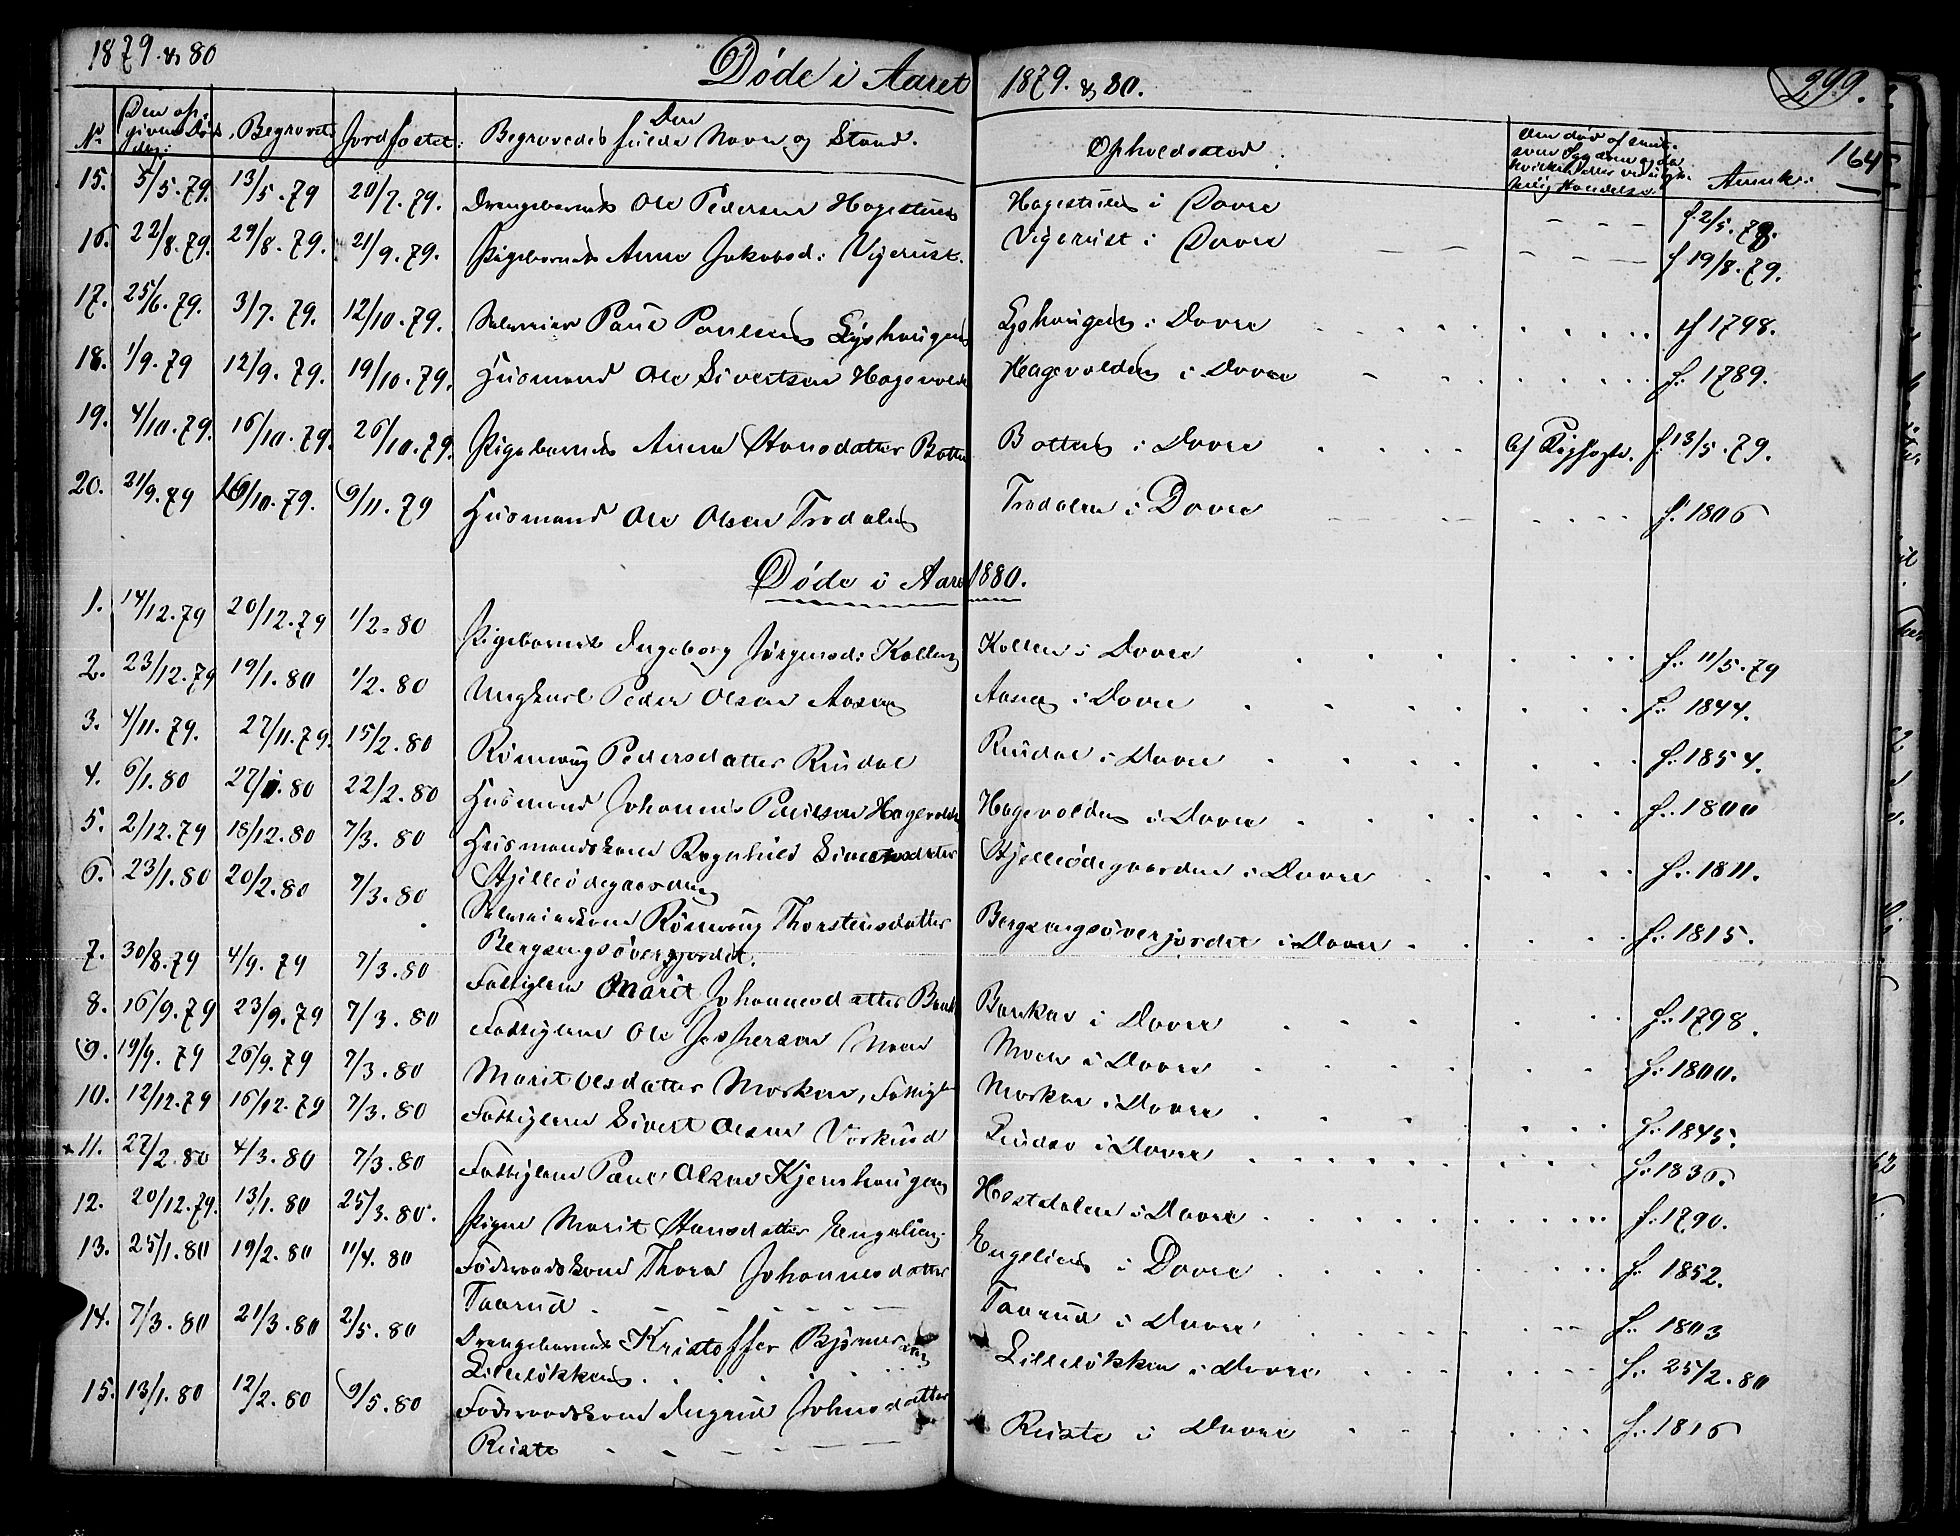 1879 & 80
Døde i Aaret 1879. & 80.
299.
164
No
Den opgivne Døds dag:
Begravet:
Jordfæstet:
Den Begravedes fulde Navn og Stand.
Opholdssted.
Anmk:
15. 5/5.79. 13/5.79 20/7.79. Drengebarnet Ole Pedersen Hagestuen Hagestuen i Dovre - - - f 2/5.79.
16. 22/8.79. 29/8.79. 21/9.79. Pigebarnet Anne Jakobsd: Vigerust. Vigerust i Dovre - - - f 19/8.79.
17. 25/6.79. 3/7.79. 12/10.79. Selveier Paul Paulsen Lyshaugen Lyshaugen i Dovre . . . f 1798.
18. 1/9.79 12/9.79. 19/10.79. Husmand Ole Sivertsen Hagevolden Hagevolden i Dovre . . . f: 1789.
19. 4/10.79. 16/10.79. 26/10.79. Pigebarnet Anna Hansdatter Botten Botten i Dovre . . . af Kighoste. f. 13/5.79.
20. 21/9.79 10/10.79. 9/11.79 Husmand Ole Olsen Trodalen Trodalen i Dovre - - - f. 1806
Døde i Aaret 1880.
1. 14/12.79 20/12.79 1/2.80 Pigebarnet Ingeborg Jørgensd: Kollen Kollen i Dovre . . . f. 11/5.79
2. 23/12.79 19/1.80 1/2.80 Ungkarl Peder Olsen Aasen Aasen i Dovre . . . f: 1844.
3. 4/11.79. 27/11.79. 15/2.80 Rønnaug Pedersdatter Rudal Rudal i Dovre . . . f: 1854.
4. 6/1.80 27/1.80 22/2.80 Husmand Johannes Paulsen Hagevolden Hagevolden i Dovre . . . f: 1800
5. 2/12.79 18/12.80 7/3.80 Husmandskone Ragnhild Sivertsdatter
Kjelleødegaarden Kjelleødegaarden i Dovre . . . f: 1811.
6. 23/1.80 20/2.80 7/3.80 Selveierkone Rønnaug Thorstensdatter
Bergsengsøverjordet. Bergsengsøverjordet i Dovre . . . f: 1815.
7. 30/8.79 4/9.79 7/3.80 Fattiglem Marit Johannesdatter Bank Banken i Dovre . . . f: 1798.
8. 16/9.79 23/9.79 7/3.80 Fattiglem Ole Jespersen Moen Moen i Dovre . . . f: 1800.
9. 19/9.79 26/9.79 7/3.80 Marit Olsdatter Morken, Fattigl Morken i Dovre . . . f: 1845.
10. 12/12.79 16/12.79 7/3.80 Fattiglem Sivert Olsen Vorkind i Dovre . . . f: 1836.
+ 11. 27/2.80 4/3.80 7/3.80 Fattiglem Paul Olsen Kjernhaugen Hestdalen i Dovre . . . f: 1790.
12. 20/12.79. 13/1.80 25/3.80. Pigen Marit Hansdatter Engelien. Engelien i Dovre . . . f: 1852.
13. 25/1.80 19/2.80 11/4.80 Føderaadskone Thora Johannesdatter
Tavrud . - - - Tavrud i Dovre . . . f: 1803
14. 7/3.80 21/3.80 2/5.80 Drengebarnet Kristoffer Bjørnersen
Lilleløkken . . . Lilleløkken i Dovre . . . f: 25/2.80
15. 13/1.80 12/2.80 9/5.80 Føderaadskone Ingrid Johnsdatter
Ruste - - - Ruste i Dovre . . . f: 1816